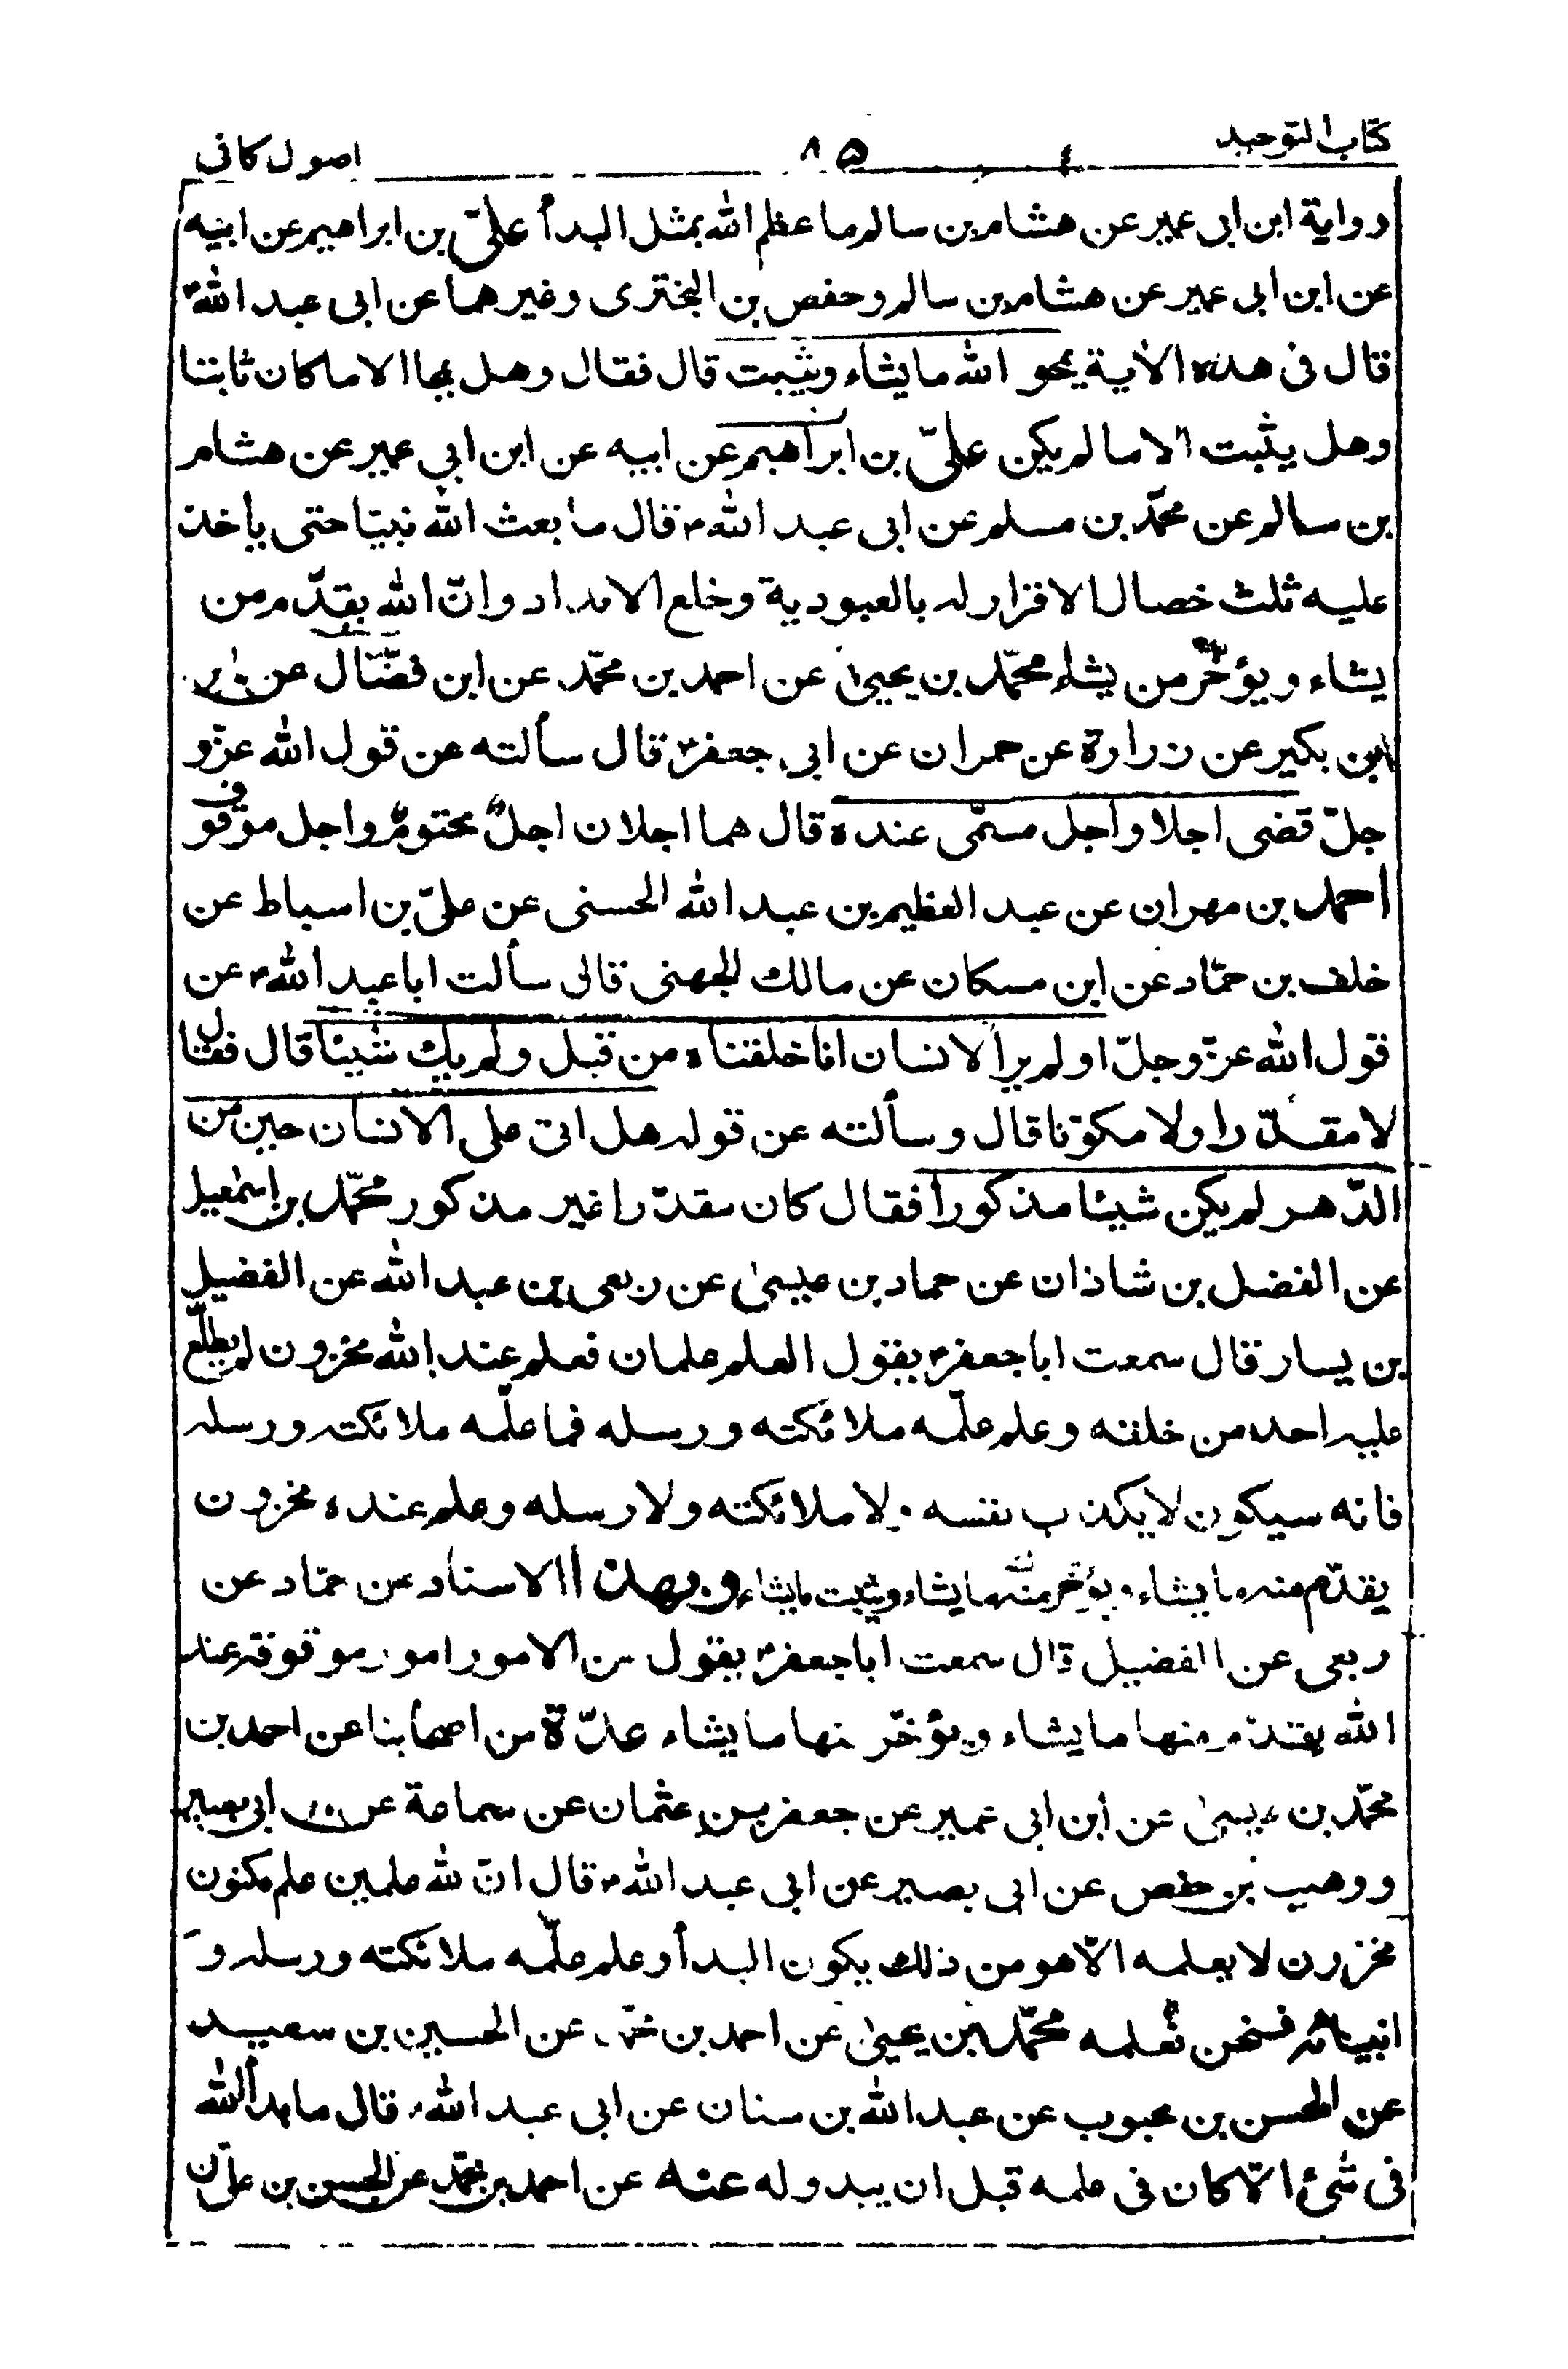 كتاب التوحيد ٨٥ اصول كافى
رواية ابن ابى عمير عن هشام بن سالم ما عظم الله بمثل البدأ علىّ بن ابراهيم عن ابيه
عن ابن ابى عمير عن هشام بن سالم وحفص بن البخترى وغيرهما عن ابى عبد الله ع
قال فى هذه الاية يمحو الله ما يشاء ويثبت قال فقال وهل يمحا الا ما كان ثابتا
وهل يثبت الا ما لم يكن علىّ بن ابراهيم عن ابيه عن ابن ابي عمير عن هشام
بن سالم عن محمّد بن مسلم عن ابى عبد الله ع قال ما بعث الله نبيّا حتى يأخذ
عليه ثلث خصال الاقرار له بالعبودية وخلع الانداد وانّ الله يقدّم من
يشاء ويؤخّر من يشاء محمّد بن يحيىٰ عن احمد بن محمّد عن ابن فضّال عن
ابن بكير عن زرارة عن حمران عن ابى جعفر ع قال سألته عن قول الله عزّ و
جلّ قضى اجلا واجل مسمّى عنده قال هما اجلان اجلٌ محتومٌ واجل موقوف
احمد بن مهران عن عبد العظيم بن عبد الله الحسنى عن علىّ بن اسباط عن
خلف بن حمّاد عن ابن مسكان عن مالك الجهنى قال سألت ابا عبد الله ع عن
قول الله عزّ وجلّ اولم ير الانسان انا خلقناه من قبل ولم يك شيئا قال فقال
لا مقدّرا ولا مكوّنا قال وسألته عن قوله هل اتى على الانسان حين من
الدّهر لم يكن شيئا مذكورا فقال كان مقدّرا غير مذكور محمّد بن اسمٰعيل
عن الفضل بن شاذان عن حماد بن عيسىٰ عن ربعى بن عبد الله عن الفضيل
بن يسار قال سمعت ابا جعفر ع يقول العلم علمان فعلم عند الله مخزون لم يطلع
عليه احد من خلقه وعلم علّمه ملائكته ورسله فما علّمه ملائكته ورسله
فانه سيكون لا يكذب نفسه ولا ملائكته ولا رسله وعلم عنده مخزون
يقدّم منه ما يشاء ويؤخّر منه ما يشاء ويثبت ما يشاء وبهذا الاسناد عن حمّاد عن
ربعى عن الفضيل قال سمعت ابا جعفر ع يقول من الامور امور موقوفة عند
الله يقدّم منها ما يشاء ويؤخّر منها ما يشاء عدّة من اصحابنا عن احمد بن
محمّد بن عيسىٰ عن ابن ابى عمير عن جعفر بن عثمان عن سماعة عن ابى بصير
ووهيب بن حفص عن ابى بصير عن ابى عبد الله ع قال انّ لله علمين علم مكنون
مخزون لا يعلمه الّا هو من ذلك يكون البدأ وعلم علّمه ملائكته ورسله و
انبيائه فنحن نعلمه محمّد بن يحيىٰ عن احمد بن محمّد عن الحسين بن سعيد
عن الحسن بن محبوب عن عبد الله بن سنان عن ابى عبد الله ع قال ما بدأ لله
فى شئ الّا كان فى علمه قبل ان يبدو له عنه عن احمد بن محمّد عن الحسن بن على